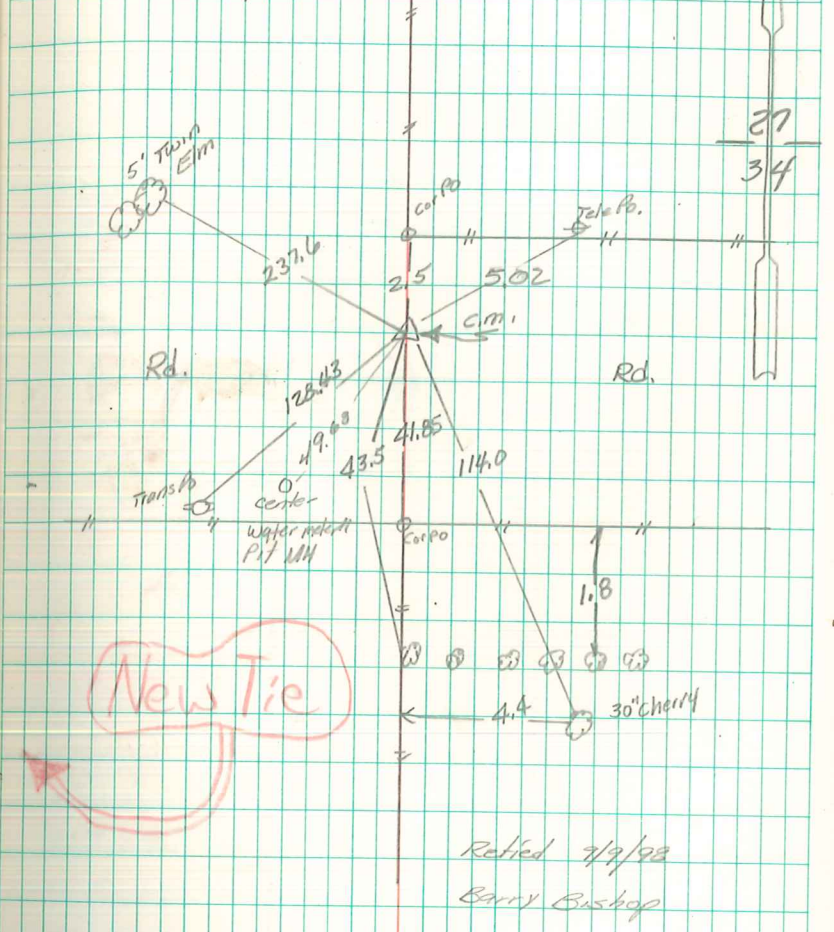 27
34
5' Twin
Elm
CorPo
TelePo.
237.6
2.5
5.02
C.M.
Rd.
Rd.
128.43
49.68
41.85
43.5
114.0
TransPo
center
water meter
Pit MH
CorPo
1.8
New Tie
4.4
30" Cherry
Retied 9/9/98
Barry Bishop